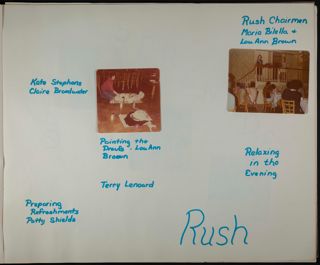 Rush Chairmen
Maria Bilella +
Lou Ann Brown
Kate Stephens
Claire Broadwater
Painting the
Lou Ann
Brown
Relaxing
in the
Evening
Terry Lenoard
Preparing
Refreshments
Patty Shields
Rush